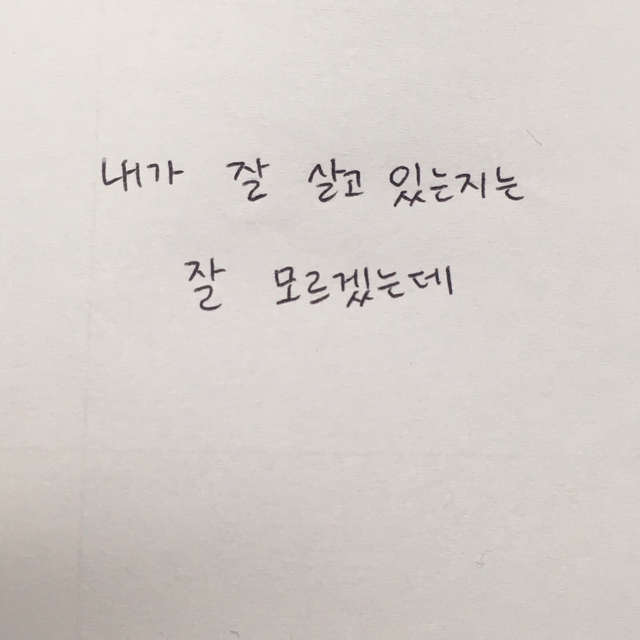 내가 잘 살고 있는지는
잘 모르겠는데